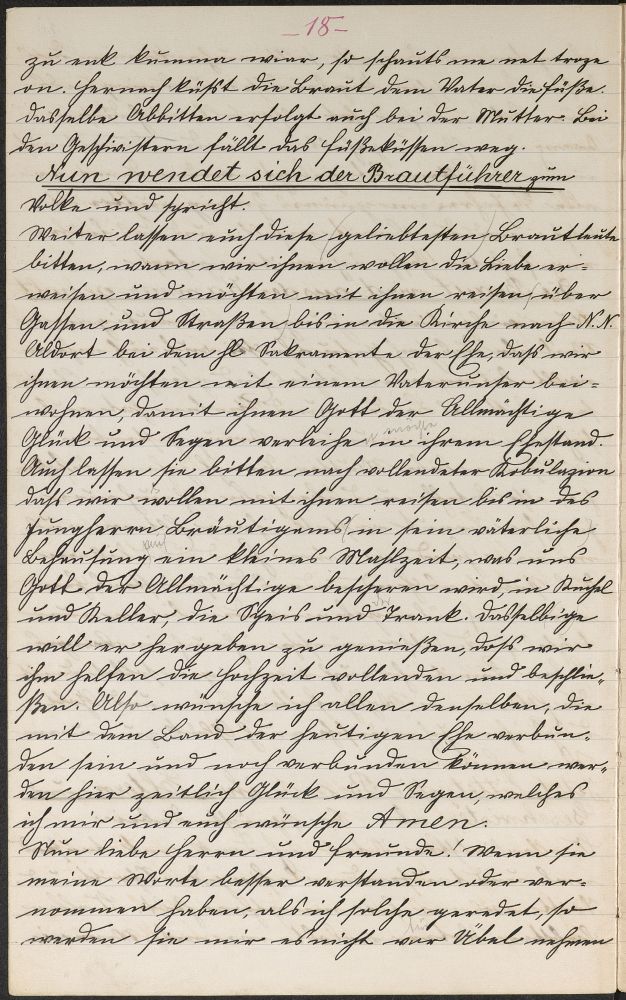 -18-
zu enk kumma wiar, so schauts me net troze
on. Hernach küßt die Braut dem Vater die Füße.
Dasselbe Abbitten erfolgt auch bei der Mutter. Bei
den Geschwistern fällt das Füßeküssen weg.
Nun wendet sich der Brautführer zum
Volke und spricht.
Weiter lassen euch diese geliebtesten Brautleute
bitten, wann wir ihnen wollen die Liebe er-
weisen und möchten mit ihnen reisen, über
Gassen und Straßen bis in die Kirche nach N. N.
Aldort bei dem hl. Sakramente der Ehe, daß wir
ihnen möchten mit einem Vaterunser bei-
wohnen, damit ihnen Gott der Allmächtige
Glück und Segen verleihe in ihrem Ehestand.
Auch lassen sie bitten, nach vollendeter Kobulazion
daß wir wollen mit ihnen reisen bis in des
Jungherrn Bräutigams in sein väterliche
Behausung ein kleines Mahlzeit, was uns
Gott der Allmächtige bescheren wird, in Kuchel
und Keller, die Speis und Trank. Dasselbige
will er hergeben zu genießen, daß wir
ihm helfen die Hochzeit vollenden und beschlie-
ßen. Also wünsche ich allen denselben, die
mit dem Band der heutigen Ehe verbun-
den sein und noch verbunden können wer-
den hier zeitlich Glück und Segen, welches
ich mir und euch wünsche Amen.
Nun liebe Herrn und Freunde! Wenn sie
meine Worte besser verstanden oder ver-
nommen haben, als ich solche geredet, so
werden sie mir es nicht vor Übel nehmen